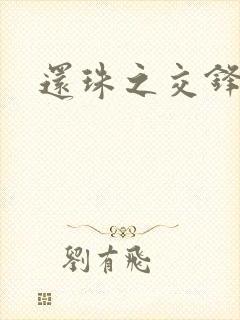 還珠之交鋒
劉有飛